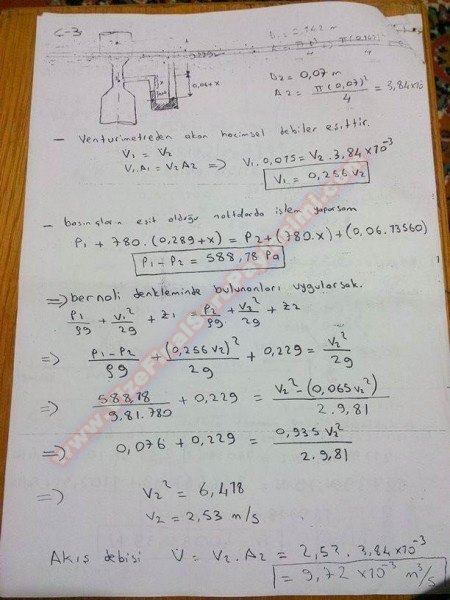 C-3)
0,06+x
D2 = 0,07 m
A2 = π(0,07)² / 4 = 3,84x10
- Venturimetreden akan hacimsel debiler eşittir.
V1 = V2
V1.A1 = V2A2 => V1.0,015 = V2.3,84x10⁻³
V1 = 0,256 V2
- basınçların eşit olduğu noktalarda işlem yaparsam
P1 + 780.(0,289+x) = P2+(780.x)+(0,06.13560)
P1-P2 = 588,78 Pa
=> bernoli denkleminde bulunanları uygularsak.
P1/ρg + V1²/2g + z1 = P2/ρg + V2²/2g + z2
=> P1-P2/ρg + (0,256V2)²/2g + 0,229 = V2²/2g
=> 588,78/9,81.780 + 0,229 = V2²-(0,065V2²)/2.9,81
=> 0,076 + 0,229 = 0,935 V2²/2.9,81
=> V2² = 6,418
V2 = 2,53 m/s
Akış debisi V = V2.A2 = 2,53.3,84x10⁻³
= 9,72 x10⁻³ m³/s